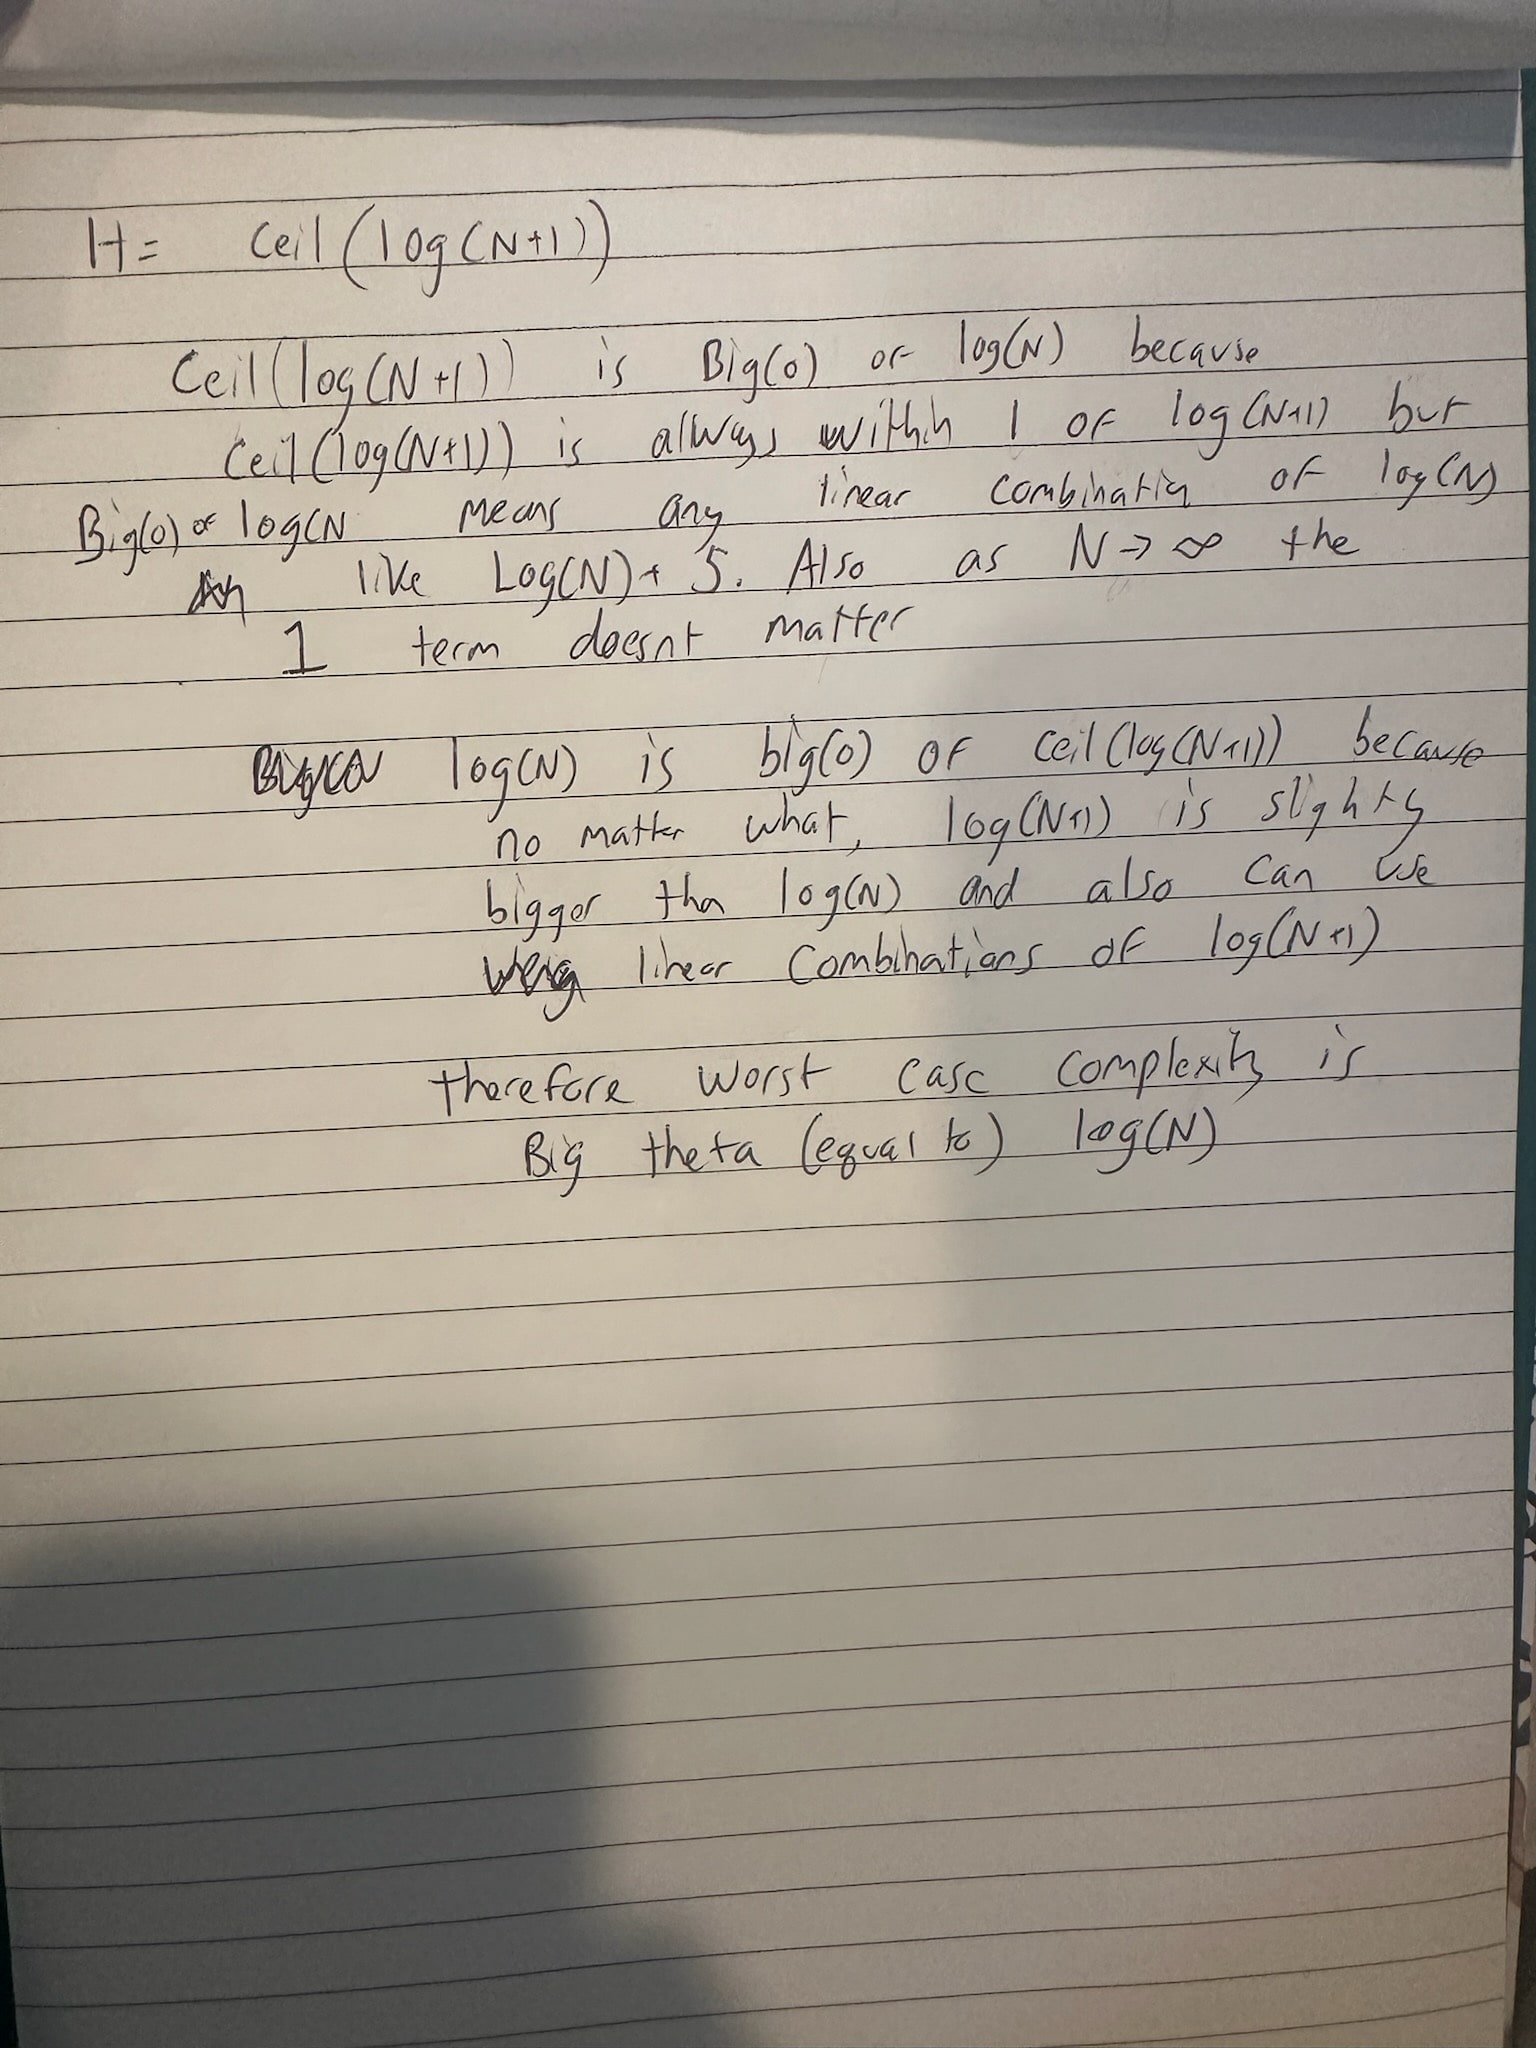 H = Ceil(log(N+1))
Ceil(log(N+1)) is Big(O) of log(N) because
Ceil(log(N+1)) is always within 1 of log(N+1) but
Big(O) of log(N means any linear combination of log(N)
like Log(N)+ 5. Also as N→∞ the
1 term doesnt matter
log(N) is big(O) of Ceil(log(N+1)) because
no matter what, log(N+1) is slighty
bigger tha log(N) and also can use
linear Combinations of log(N+1)
therefore worst case complexity is
Big theta (equal to) log(N)